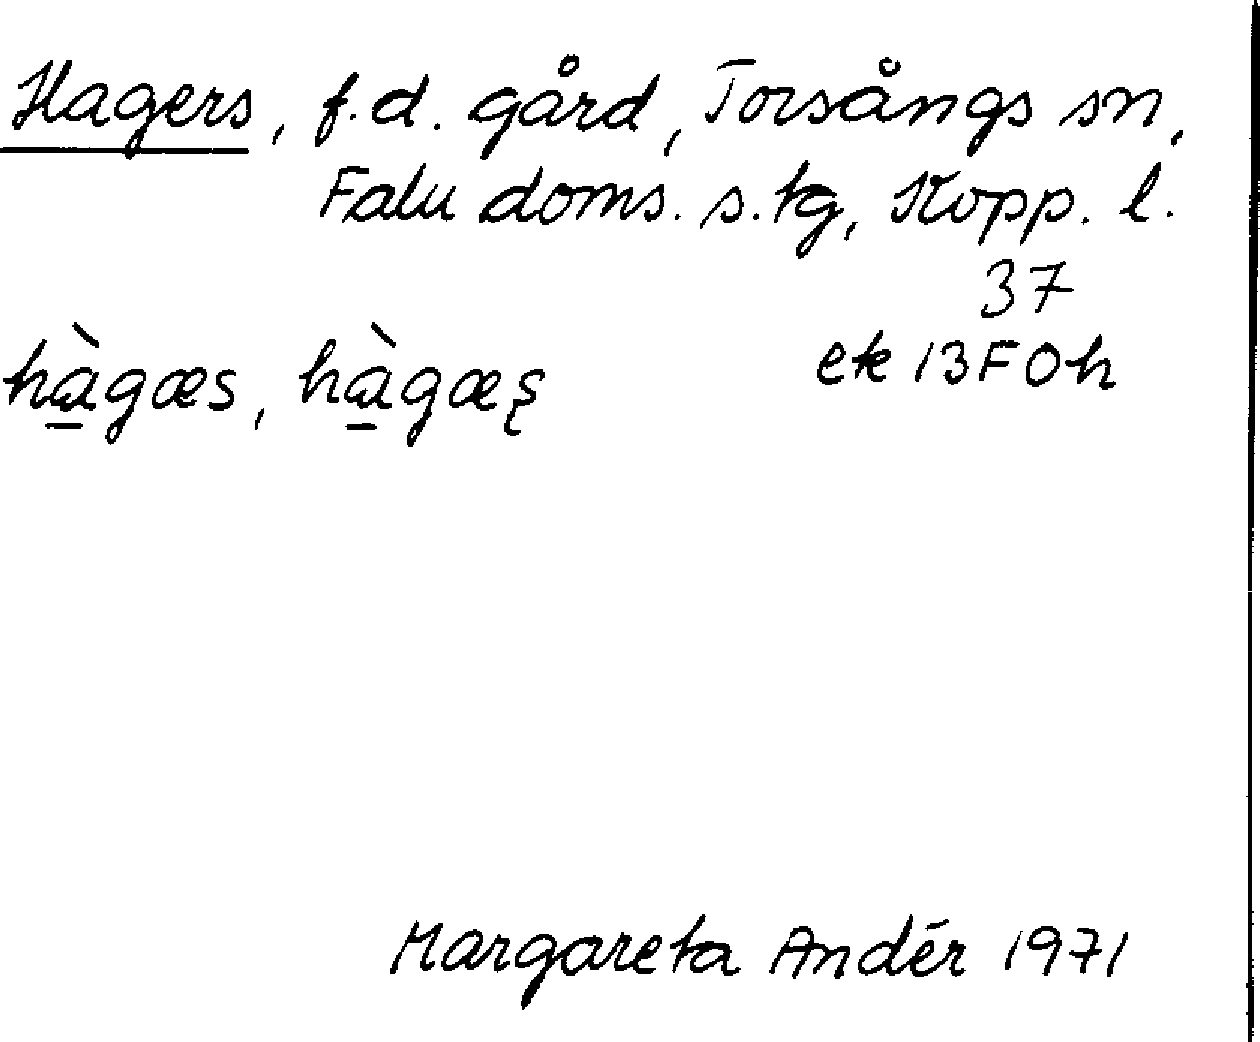 Hagers, f.d. gård, Torsångs sn,
Falu doms. s. tg, Kopp. l.
37
hà̱gæs, hà̱gæş
ek 13F0h
Margareta Andér 1971